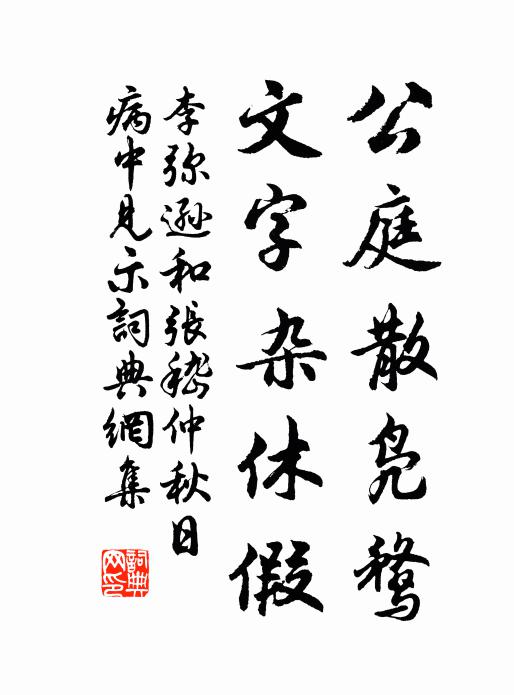 公庭散凫鶩
文字杂休假
李弥遜和張嵇仲秋日
病中見示詞典網集
詞典网印